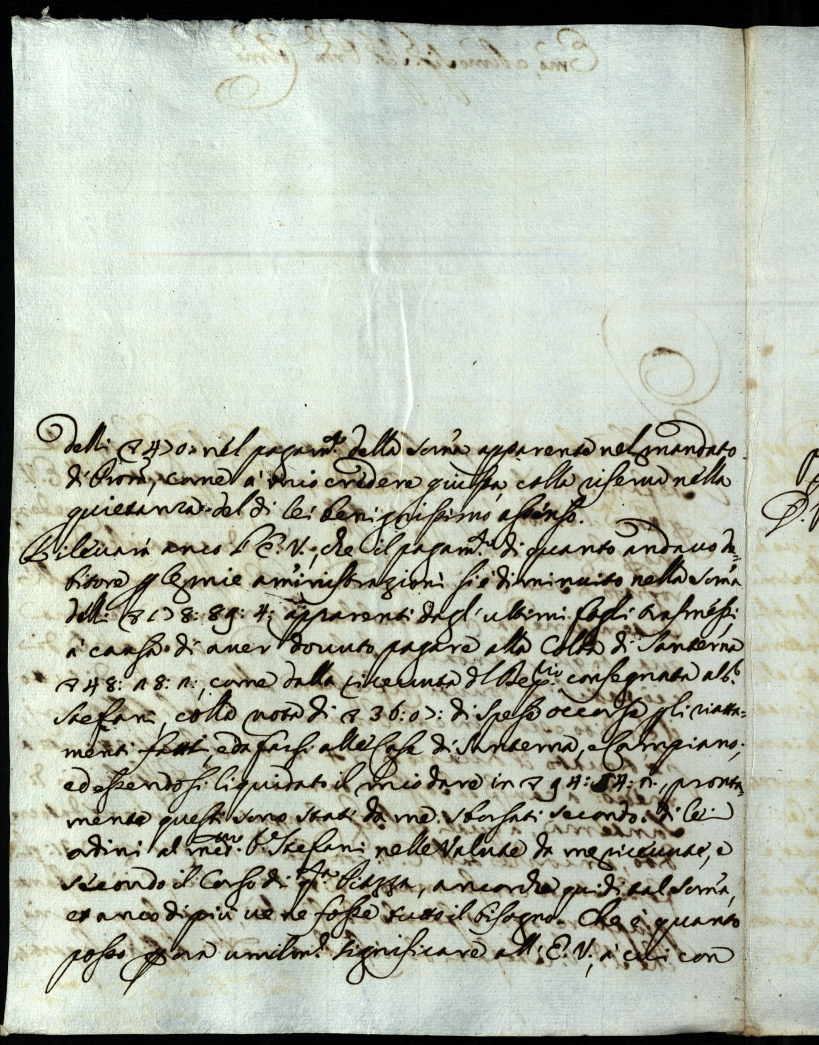 delli 470: nel pagam.to della soma apparente nel mandato
di Prora, come à mio credere giusta, colla riserva nella
quietanza del di lei benignissimo assenso.
Rilevarà anco l'E.V., che il pagam.to di quanto andavo de=
bitore p le mie aministrazioni si è diminuito nella soma
delli 178: 89: 4: apparenti dagl'ultimi fogli trasmessi,
à causa di aver dovuto pagare alla Colta di Santerna
48: 18: 1:, come dalla ricevuta del consegnata al S.r
Stefani, colla nota di 36: 07: di spese occorse p li riatta=
menti fatti, e da farsi alle Case di Santerna, e Campiano;
ed essendosi liquidato il mio dare in 94: 54: pronta
mente questi sono stati da me sborsati secondo i di lei
ordini al med.mo S.r Stefani nelle Valute da me ricevute, e
secondo il Corso di q.ta Piazza, ancorche qui di tal soma,
et anco di più ve ne fosse tutto il bisogno. Che è quanto
posso p ora umilm.te significare all'E.V., à cui con